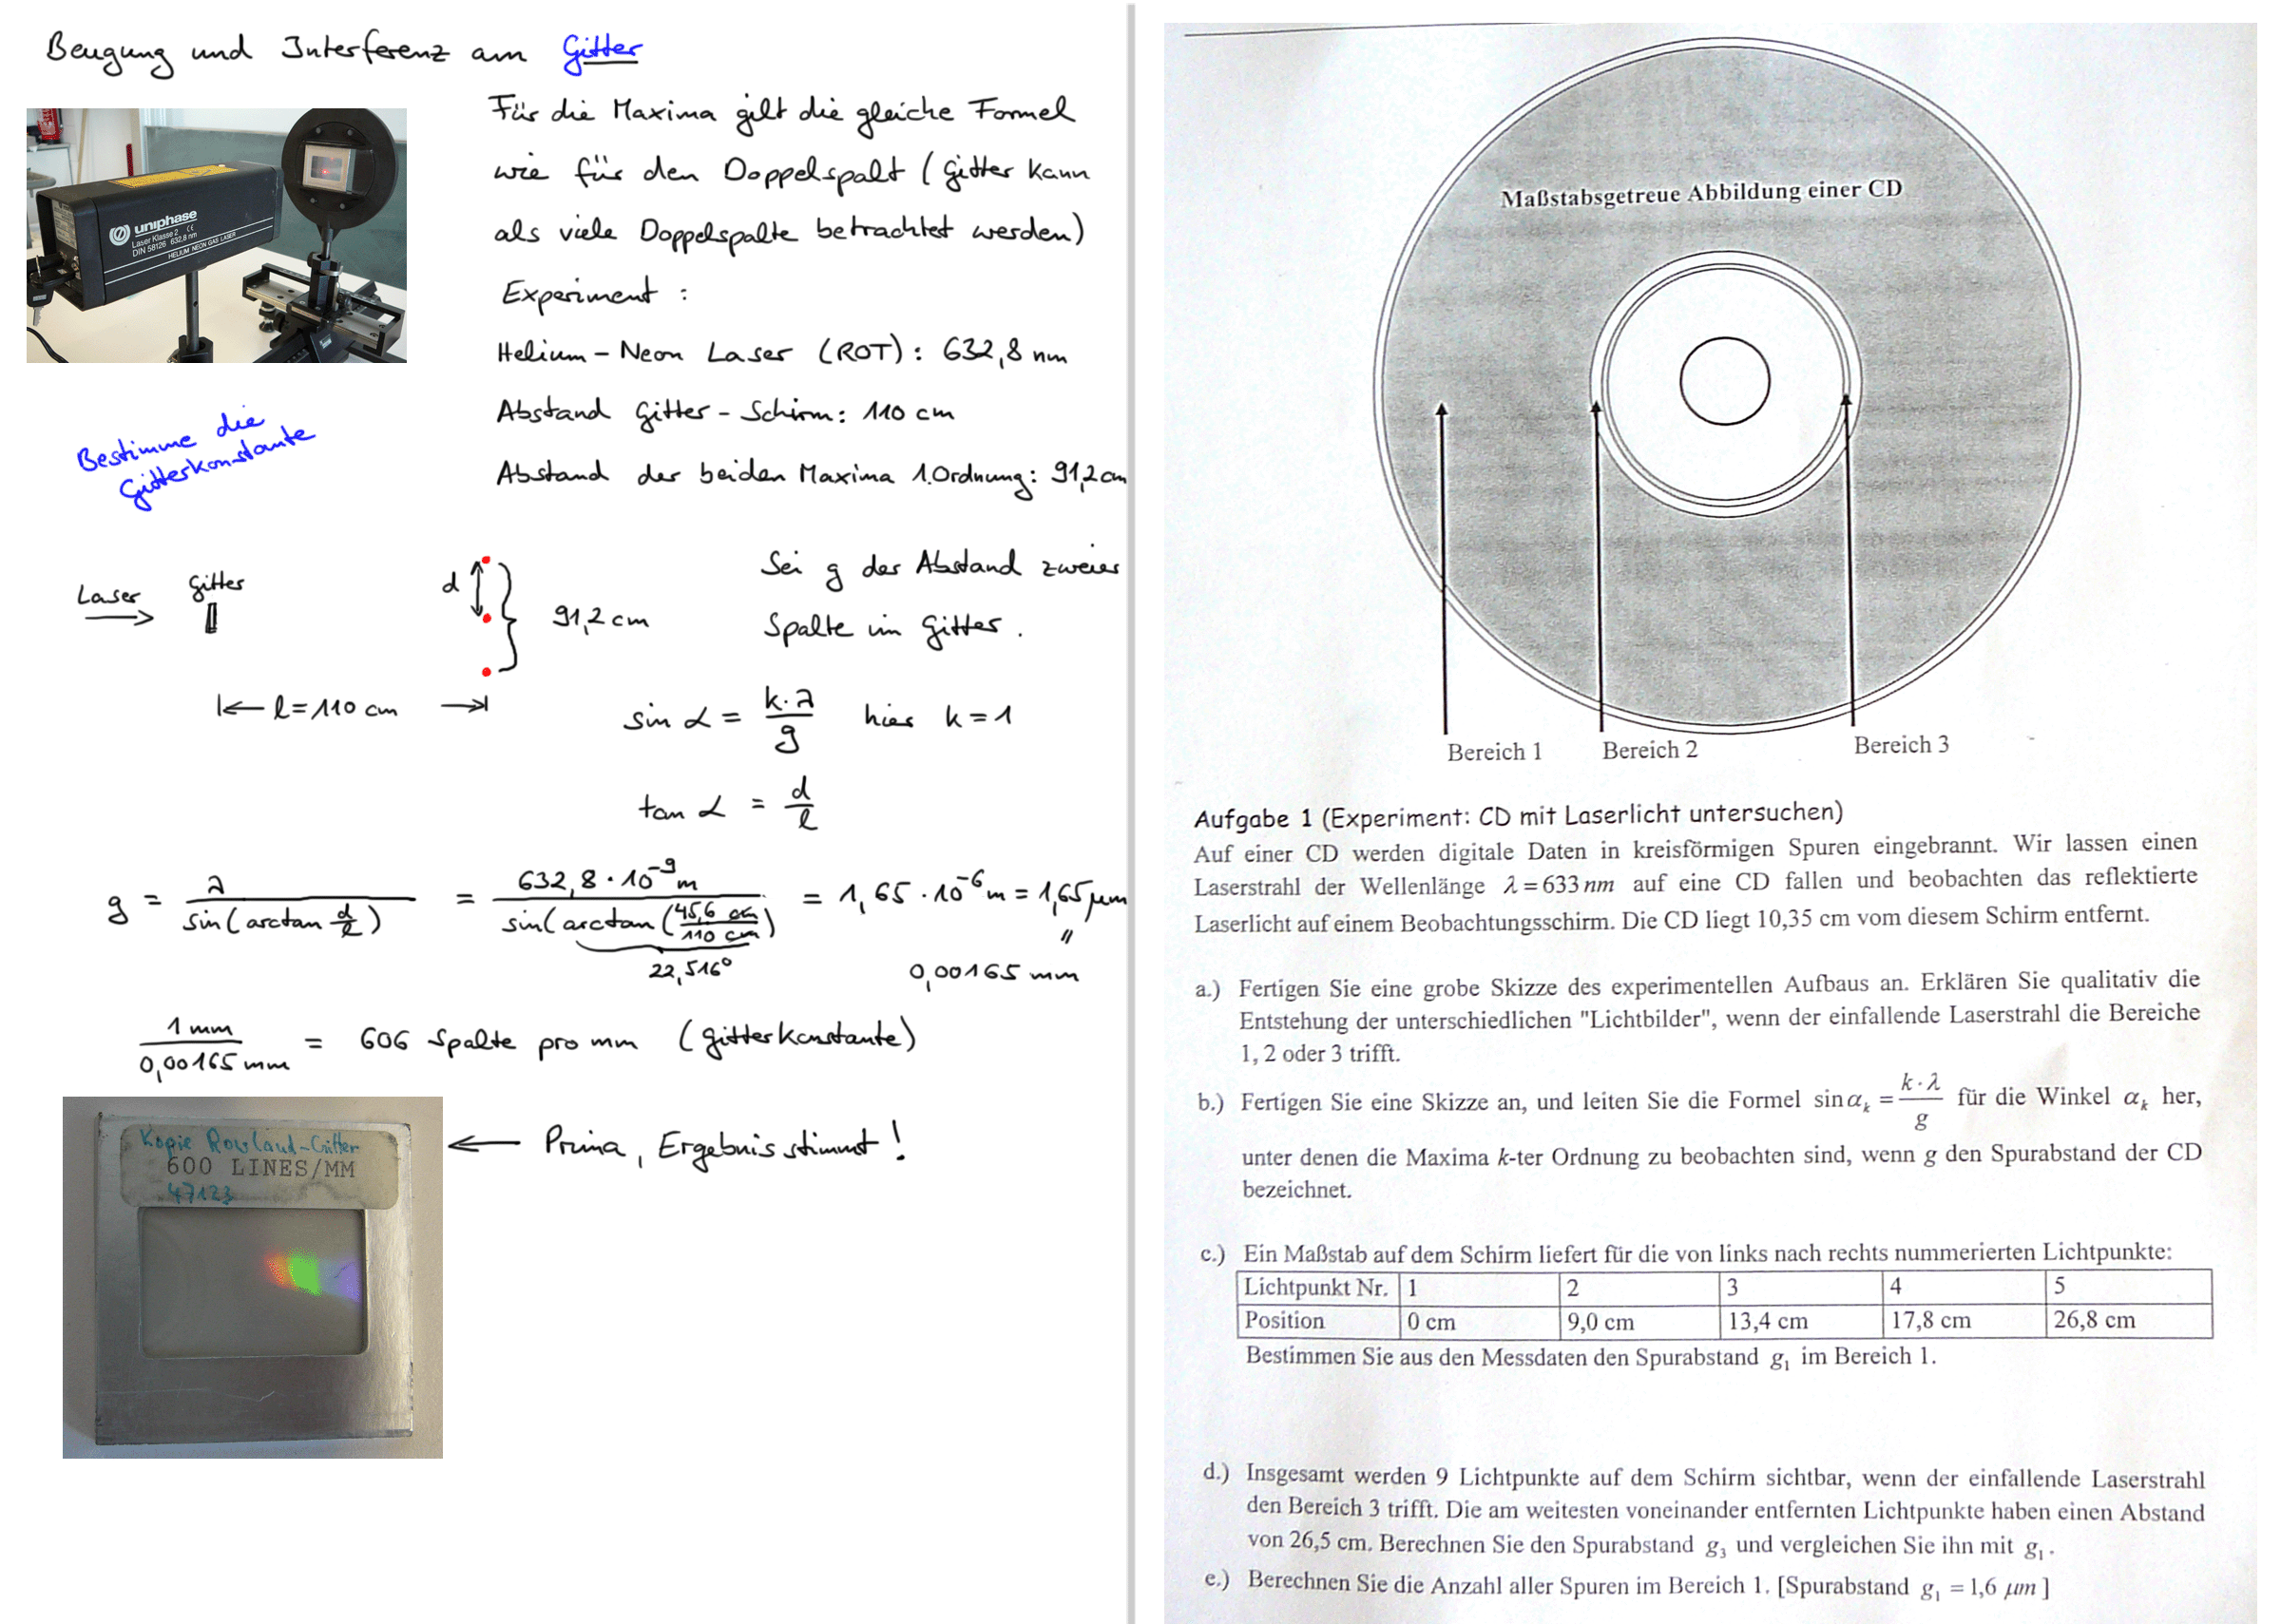 Beugung und Interferenz am Gitter
Für die Maxima gilt die gleiche Formel
wie für den Doppelspalt (Gitter kann
als viele Doppelspalte betrachtet werden)
Experiment :
Helium-Neon Laser (ROT): 632,8 nm
Abstand Gitter-Schirm: 110 cm
Abstand der beiden Maxima 1.Ordnung: 91,2 cm
uniphase
Laser Klasse 2
DIN 58126 632,8 nm
HELIUM NEON GAS LASER
Bestimme die
Gitterkonstante
Laser
Gitter
d
91,2 cm
l = 110 cm
Sei g der Abstand zweier
Spalte im Gitter.
sin α = k·λ / g hier k = 1
tan α = d / l
g = λ / sin(arctan d/l) = 632,8 · 10⁻⁹ m / sin(arctan(45,6 cm / 110 cm)) = 1,65 · 10⁻⁶ m = 1,65 µm
22,516°
"
0,00165 mm
1 mm / 0,00165 mm = 606 Spalte pro mm (Gitterkonstante)
Kopie Rowland-Gitter
600 LINES/MM
47123
← Prima, Ergebnis stimmt!
Maßstabsgetreue Abbildung einer CD
Bereich 1
Bereich 2
Bereich 3
Aufgabe 1 (Experiment: CD mit Laserlicht untersuchen)
Auf einer CD werden digitale Daten in kreisförmigen Spuren eingebrannt. Wir lassen einen
Laserstrahl der Wellenlänge λ = 633 nm auf eine CD fallen und beobachten das reflektierte
Laserlicht auf einem Beobachtungsschirm. Die CD liegt 10,35 cm vom diesem Schirm entfernt.
a.) Fertigen Sie eine grobe Skizze des experimentellen Aufbaus an. Erklären Sie qualitativ die
Entstehung der unterschiedlichen "Lichtbilder", wenn der einfallende Laserstrahl die Bereiche
1, 2 oder 3 trifft.
b.) Fertigen Sie eine Skizze an, und leiten Sie die Formel sin αₖ = k·λ / g für die Winkel αₖ her,
unter denen die Maxima k-ter Ordnung zu beobachten sind, wenn g den Spurabstand der CD
bezeichnet.
c.) Ein Maßstab auf dem Schirm liefert für die von links nach rechts nummerierten Lichtpunkte:
Lichtpunkt Nr. 1 2 3 4 5
Position 0 cm 9,0 cm 13,4 cm 17,8 cm 26,8 cm
Bestimmen Sie aus den Messdaten den Spurabstand g₁ im Bereich 1.
d.) Insgesamt werden 9 Lichtpunkte auf dem Schirm sichtbar, wenn der einfallende Laserstrahl
den Bereich 3 trifft. Die am weitesten voneinander entfernten Lichtpunkte haben einen Abstand
von 26,5 cm. Berechnen Sie den Spurabstand g₃ und vergleichen Sie ihn mit g₁.
e.) Berechnen Sie die Anzahl aller Spuren im Bereich 1. [Spurabstand g₁ = 1,6 µm ]